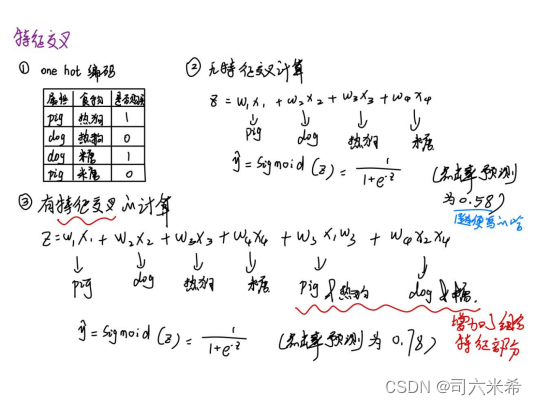 特征交叉
① one hot 编码
属性 食物 是否点击
pig 热狗 1
dog 热狗 0
dog 米糖 1
pig 米糖 0
② 无特征交叉计算
z = w₁x₁ + w₂x₂ + w₃x₃ + w₄x₄
pig dog 热狗 米糖
ŷ = sigmoid(z) = 1/(1+e^-z) (点击率预测
为0.58)
随便写的哈
③ 有特征交叉的计算
z = w₁x₁ + w₂x₂ + w₃x₃ + w₄x₄ + w₅x₁w₃ + w₆x₂x₄
pig dog 热狗 米糖 pig & 热狗 dog & 米糖.
ŷ = sigmoid(z) = 1/(1+e^-z) (点击率预测为0.78)
增加了组合
特征部分
CSDN @司六米希